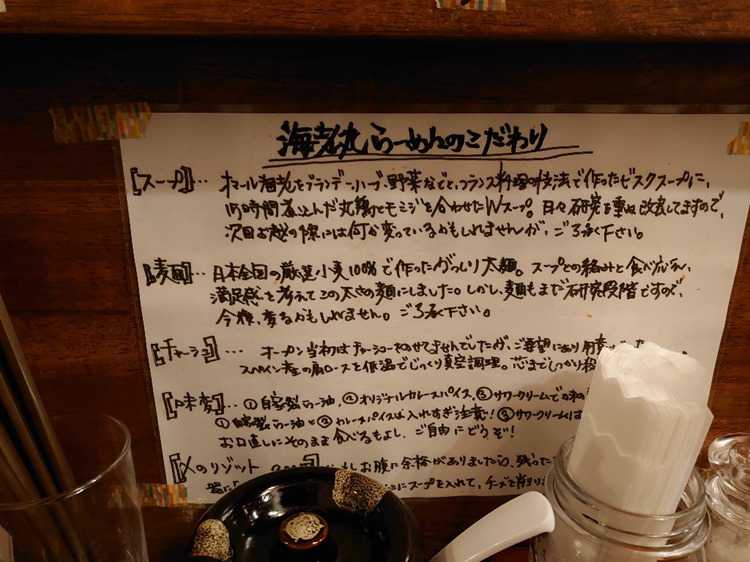 海老丸らーめんのこだわり
[スープ]… オマール海老をブランデー、ハーブ、野菜などと、フランス料理の技法で作ったビスクスープに、
時間煮込んだ丸鶏とモミジを合わせたWスープ。日々研究を重ね改良してますので、
次回お越の際には何か変っているかもしれませんが、ご了承下さい。
[麦麺]… 日本全国の厳選小麦100%で作ったがっしり太麺。スープとの絡みと食べ応え、
満足感を考えてこの太さの麺にしました。しかし、麺もまだ研究段階ですので、
今後、変るかもしれません。ご了承下さい。
[チャーシュー]… オープン当初はチャーシューをのせてませんでしたが、ご要望にあり用意
スペイン産の肩ロースを低温でじっくり真空調理。芯までしっかり
[味変]…①自家製らー油、②オリジナルカレースパイス、③サワークリームで
①自家製らー油と②カレースパイスは入れすぎ注意!③サワークリームは
お口直しにそのまま食べるもよし、ご自由にどうぞ!
[〆のリゾット お腹に余裕がありましたら、残った
にスープを入れて、チーズを